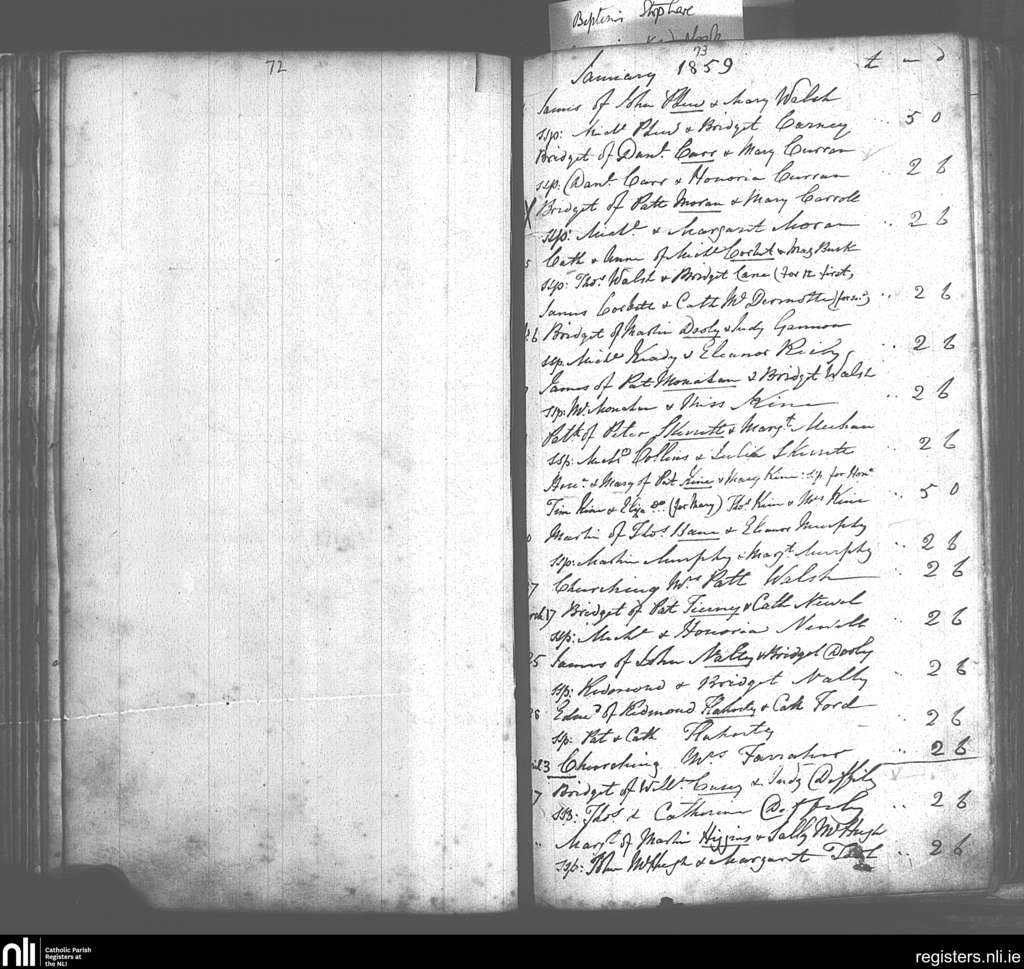 Baptisms Shop
72
73
January 1859 £ — d
James of John & Mary Walsh
ssp: Michl & Bridget Carney .. 5 0
Bridget of Danl. Carr & Mary Curran
ssp. Danl. Carr & Honoria Curran .. 2 6
X Bridget of Patt Moran & Mary Carroll
ssp: Michl & Margaret Moran .. 2 6
5 Cath & Anne of Michl Corbet & Mag Burk
ssp: Thos Walsh & Bridget Cane (for 1st first,
James Corbett & Cath McDermotte .. 2 6
6 Bridget of Martin Dooly & Judy Gannon
ssp. Michl Keady & Eleanor Reily .. 2 6
James of Pat Monahan & Bridget Walsh
ssp: Mr Monahan & Miss Kine .. 2 6
Patk of Peter Skerrett & Margt Meehan
ssp: Michl Collins & Julia Skerrett .. 2 6
& Mary of Pat Kine & Mary Kine: ssp. for Hon.
Tim Kine & Eliza Do (for Mary) Thos Kine & Mrs Kine .. 5 0
Martin of Thos. Bane & Eleanor Murphy
ssp: Martin Murphy & Margt Murphy .. 2 6
7 Churching Mrs Patt Walsh .. 2 6
rch 17 Bridget of Pat Tierney & Cath Newel
ssp: Michl & Honoria Newell 2 6
25 James of John Nalty & Bridget Dooly
ssp: Redmond & Bridget Nally .. 2 6
28 Edmd of Redmond Flaherty & Cath Ford
ssp: Pat & Cath Flaherty 2 6
ril 3 Churching Mrs Farraher .. 2 6
7 Bridget of Willm. Casey & Judy Deffily
ssp: Thos & Catherine Deffily .. 2 6
" Margt of Martin Higgins & Sally McHugh
ssp: John McHugh & Margaret .. 2 6
nli
Catholic Parish
Registers at
the NLI
registers.nli.ie